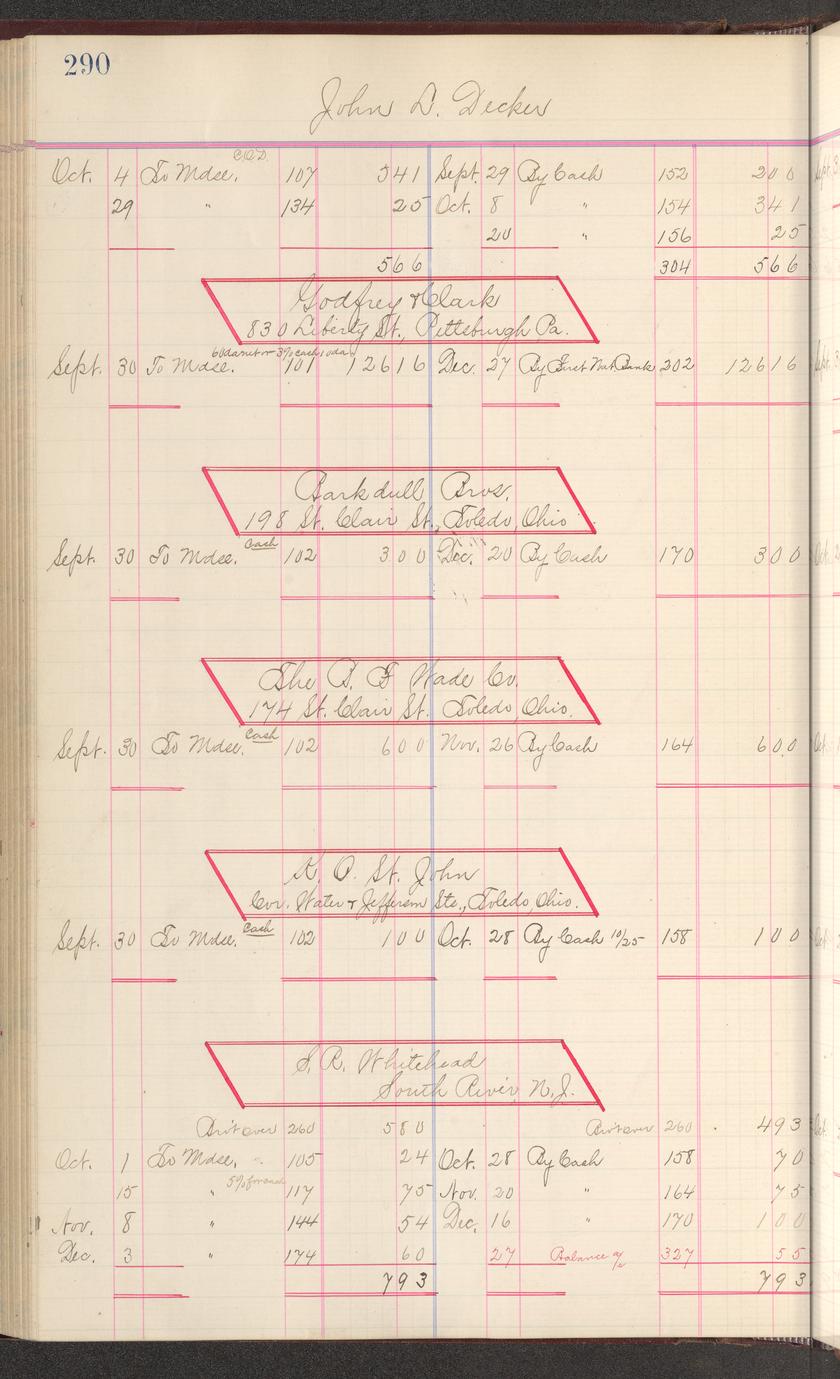 290
John L. Decker
C.O.D.
Oct. 4 To Mdse. 107 541 Sept. 29 By Cash 152 200
29 " 134 25 Oct. 8 " 154 341
20 " 156 25
566 304 566
Godfrey & Clark
830 Liberty St., Pittsburgh Pa.
60 da net or 3% cash 10 da.
Sept. 30 To Mdse. 101 12616 Dec. 27 By First Nat Bank 202 12616
Barkdull Bros.
198 St. Clair St., Toledo, Ohio
Cash
Sept. 30 To Mdse. 102 300 Dec. 20 By Cash 170 300
The B. F Wade Co.
174 St. Clair St. Toledo, Ohio.
Cash
Sept. 30 To Mdse. 102 600 Nov. 26 By Cash 164 600
K. O. St. John
Cor. Water & Jefferson Sts., Toledo, Ohio.
Cash
Sept. 30 To Mdse. 102 100 Oct. 28 By Cash 10/25 158 100
S. R. Whitehead
South River, N.J.
Bro't over 260 580 Bro't over 260 493
Oct. 1 To Mdse. 105 24 Oct. 28 By Cash 158 70
15 " 117 75 Nov. 20 " 164 75
Nov. 8 " 144 54 Dec. 16 " 170 100
Dec. 3 " 174 60 27 Balance 327 55
793 793